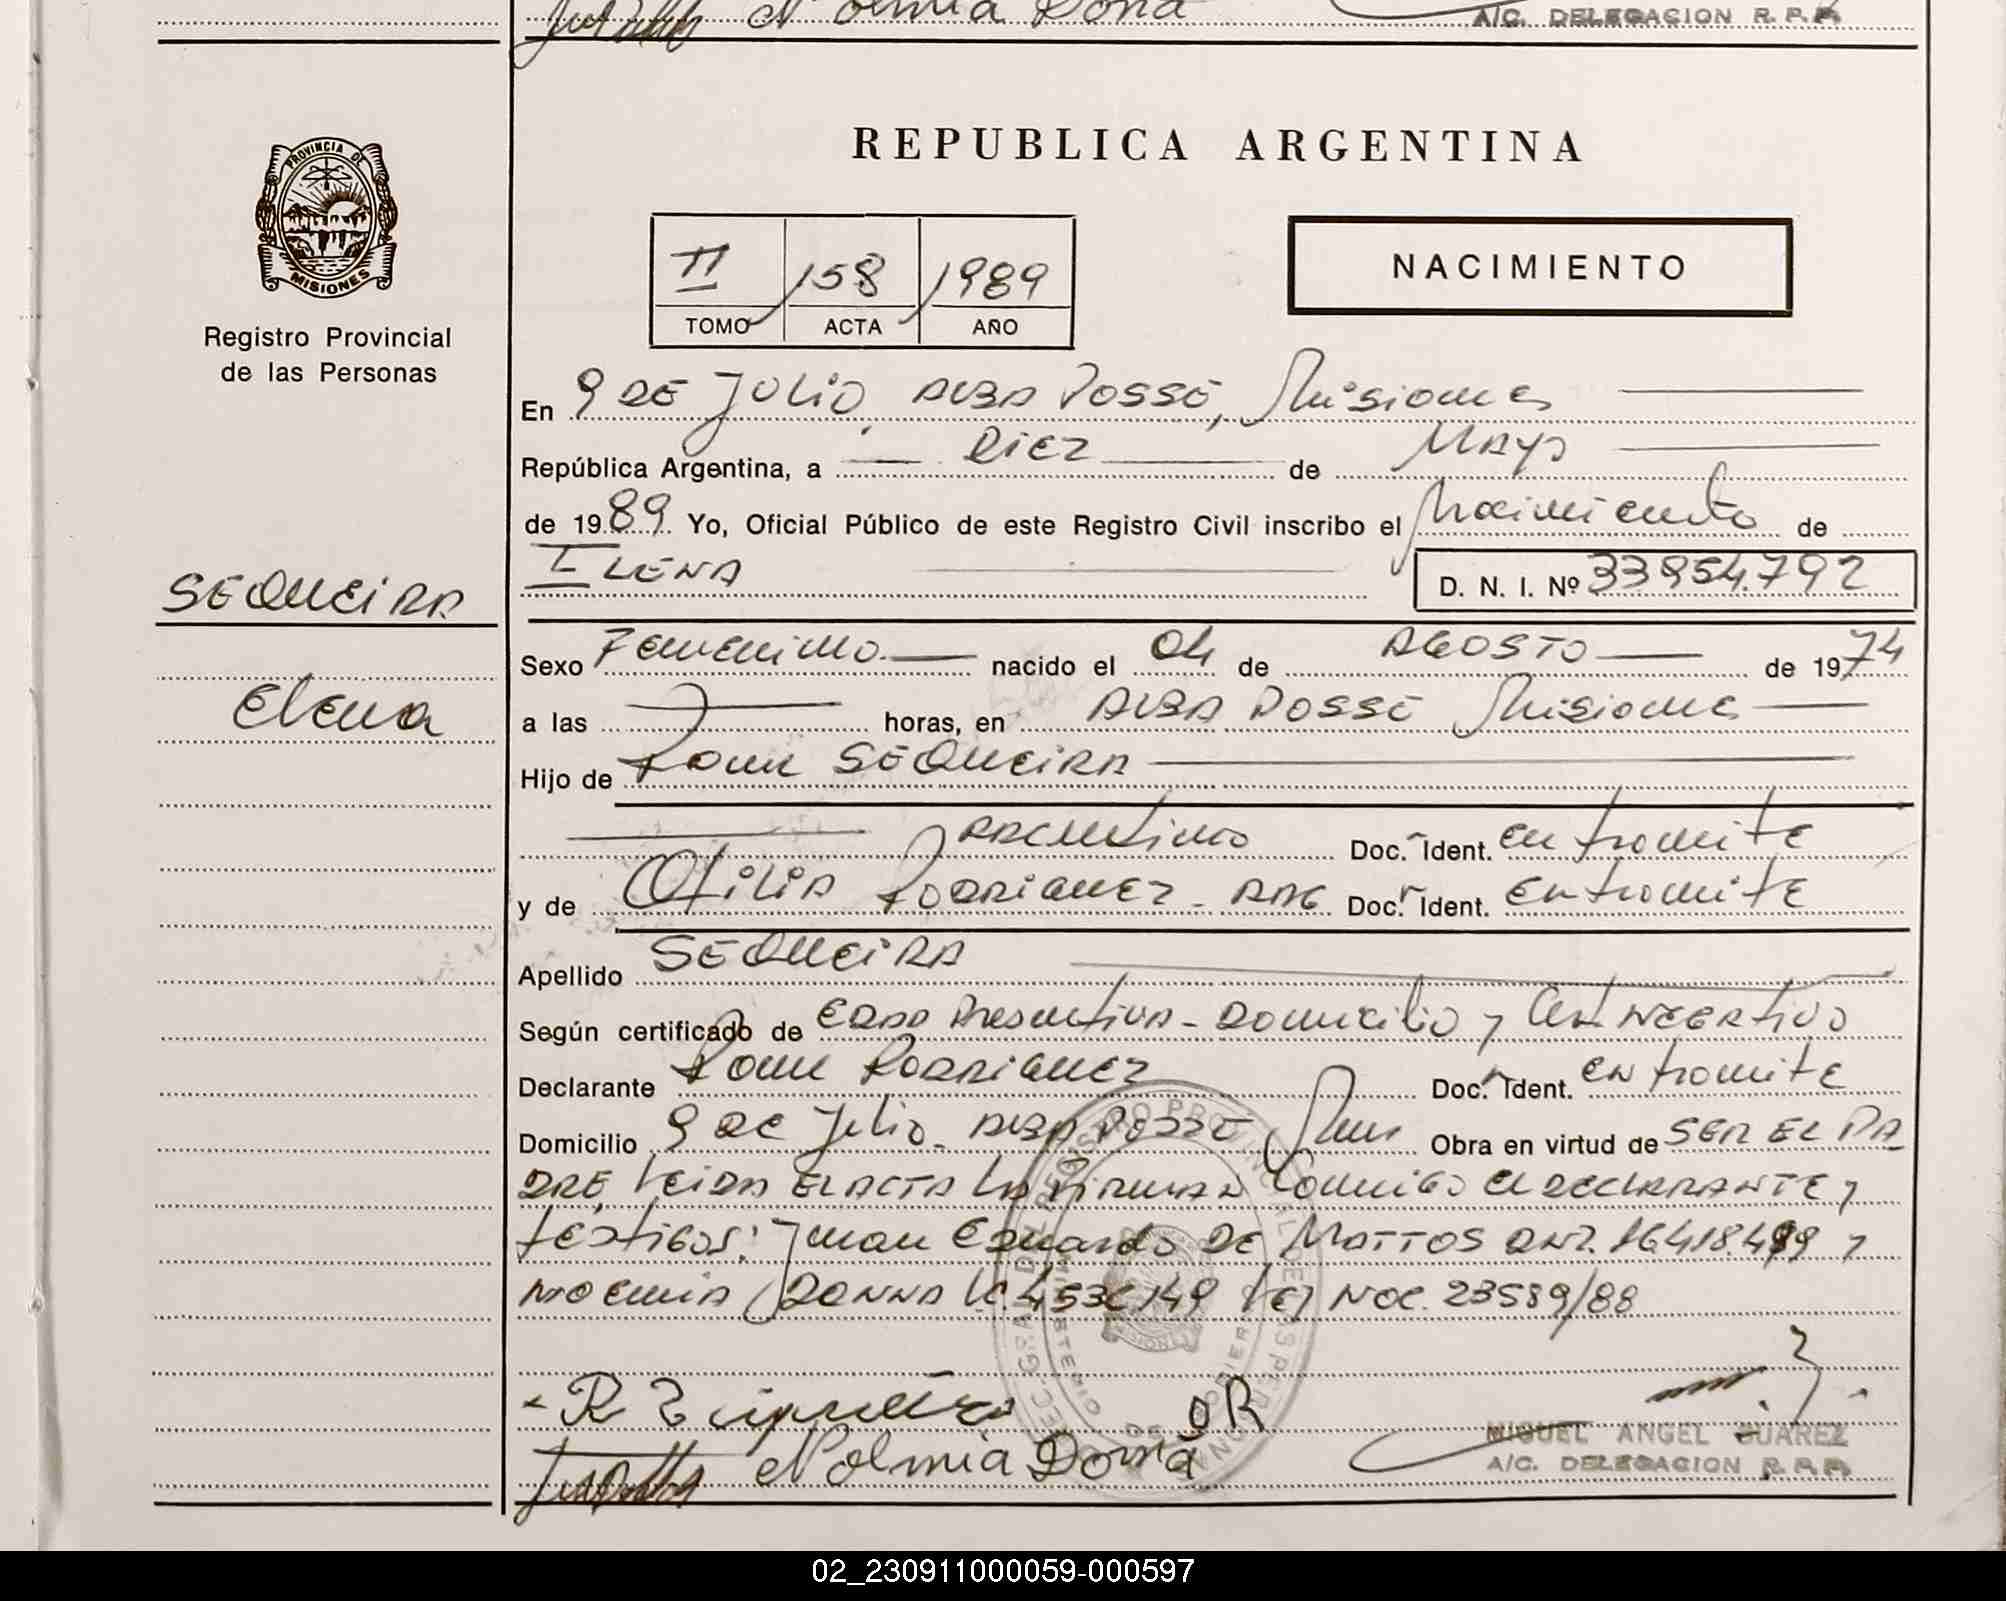 Noelmia Doná
A/C. DELEGACION R. P. P.
PROVINCIA DE
MISIONES
Registro Provincial
de las Personas
REPUBLICA ARGENTINA
II 158 1989
TOMO ACTA AÑO
NACIMIENTO
En 9 DE JULIO, ALBA POSSE, Misiones
República Argentina, a Diez de Mayo
de 1989 Yo, Oficial Público de este Registro Civil inscribo el Nacimiento de
ELENA
D. N. I. Nº 33954.792
SEQUEIRA
Elena
Sexo Femenino nacido el 04 de AGOSTO de 1974
a las horas, en ALBA POSSE Misiones
Hijo de SEQUEIRA
Argentino Doc. Ident. en tramite
y de Otilia Rodriguez - ARG Doc. Ident. En tramite
Apellido SEQUEIRA
Según certificado de Edad Presuntiva - Domicilio y Cert Negativo
Declarante Rodriguez Doc. Ident. en tramite
Domicilio 9 de Julio - ALBA POSSE Obra en virtud de SER EL PA
DRE, Leida EL ACTA LA FIRMAN Conmigo el DECLARANTE y
testigos: Juan Eduardo DE MATTOS DNI. 16.418.499 y
Noemia DONNA LC. 4536149 Ley NAC. 23589/88
REGISTRO PROVINCIAL DE LAS PERSONAS
OR
Noelmia Doná
MIGUEL ANGEL SUAREZ
A/C. DELEGACION R. P. P.
02_230911000059-000597